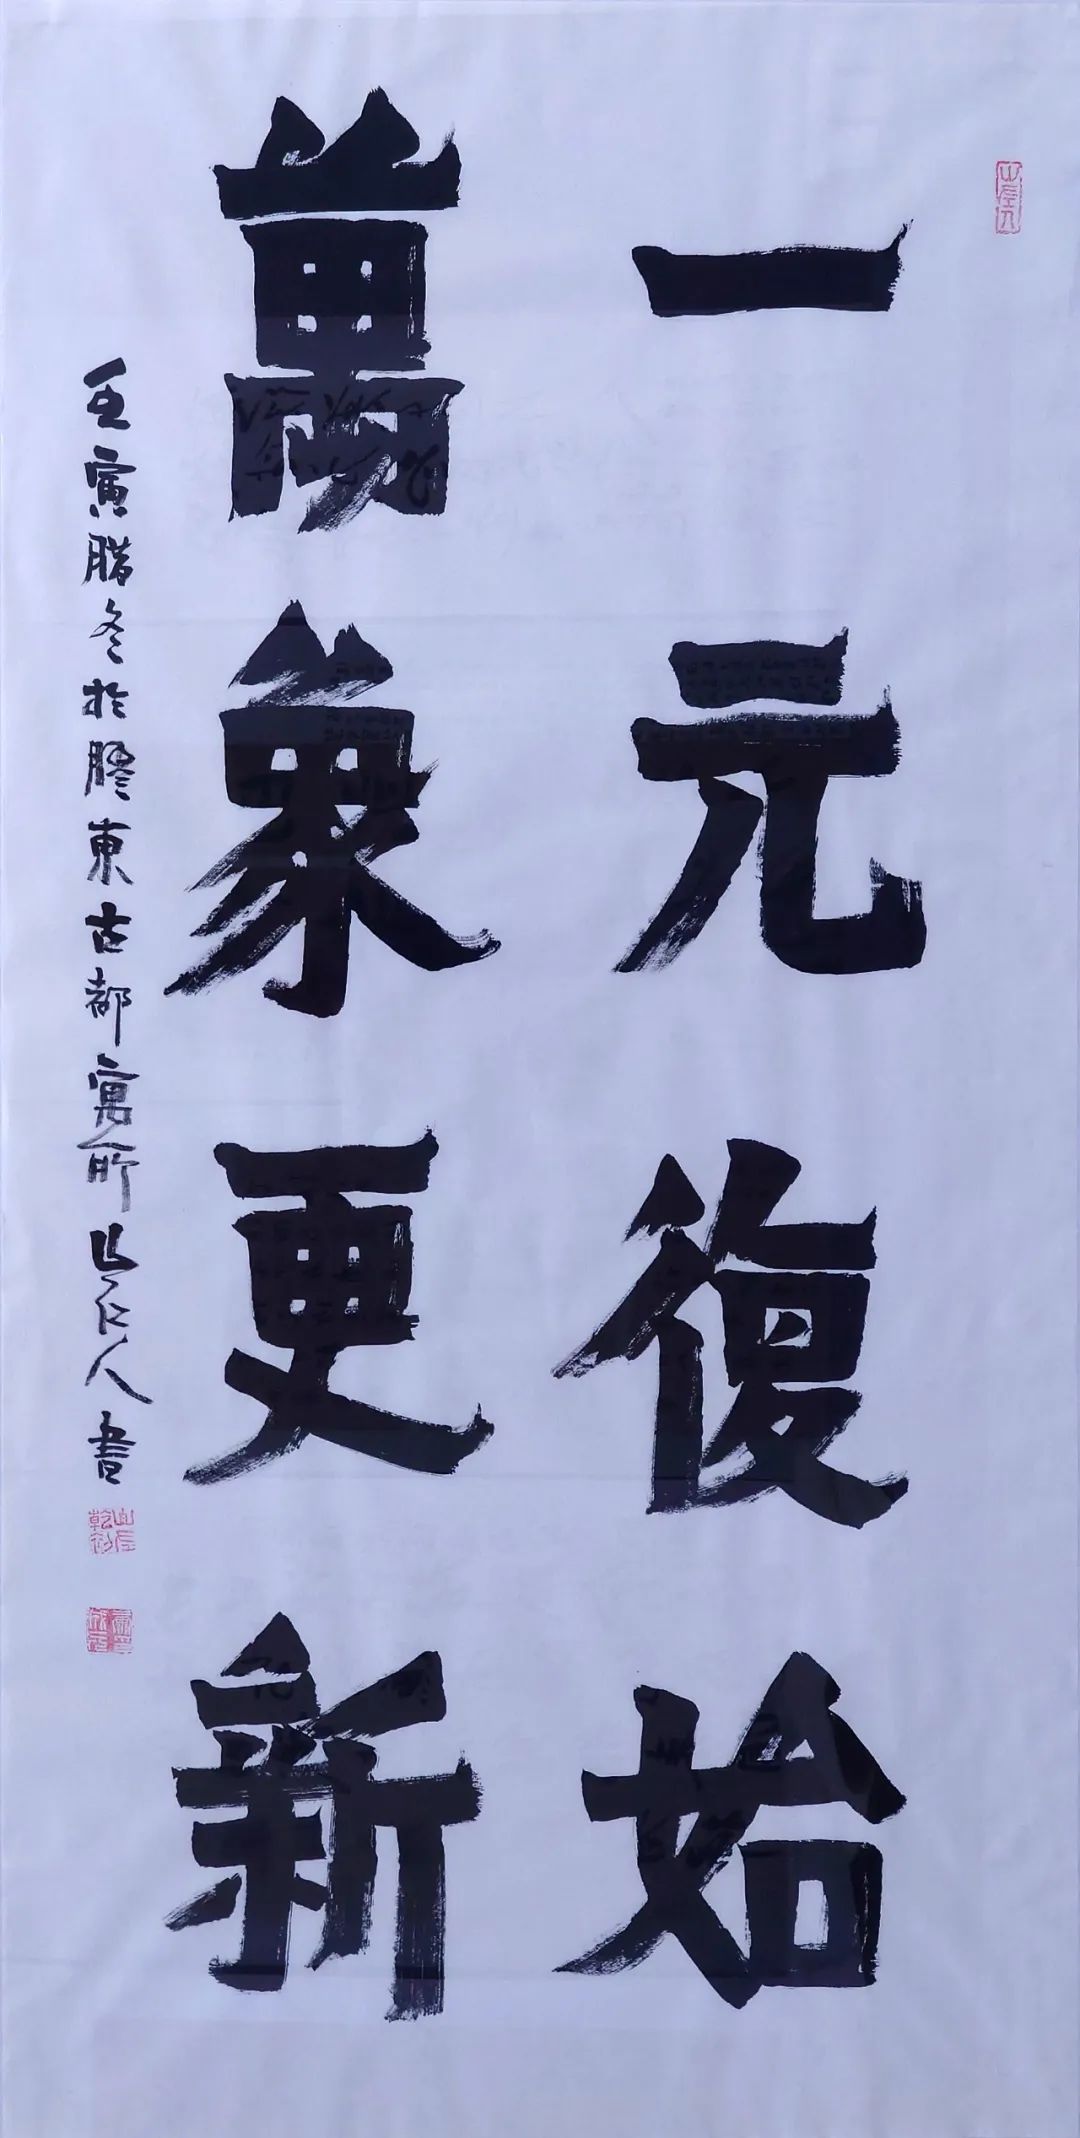 一元復始
萬象更新
壬寅腊冬於膠東古都寓所山左人書
山左人